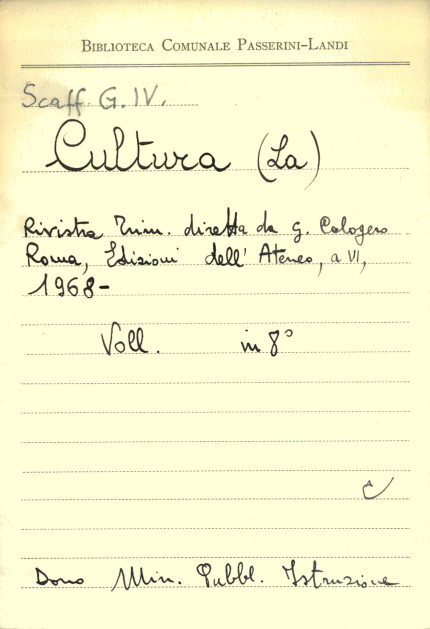 BIBLIOTECA COMUNALE PASSERINI-LANDI
Scaff. G. IV.
Cultura (La)
Rivista Trim. diretta da G. Calogero
Roma, Edizioni dell' Ateneo, a VI,
1968-
Voll. in 8°
C
Dono Min. Pubbl. Istruzione